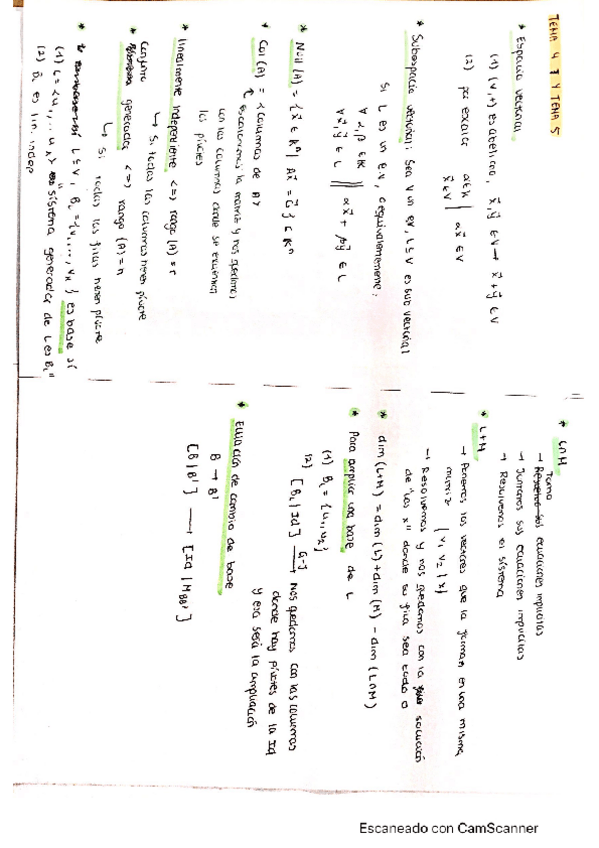 TEMA 4 Y TEMA 5
* Espacio vectorial
(1) (V,+) es abeliano, x⃗,y⃗ ∈ V → x⃗+y⃗ ∈ V
(2) por escalar α∈K | αx⃗ ∈ V
x⃗∈V
* Subespacio vectorial: Sea V un EV, L≤V es sub vectorial
Si L es un E.V, o equivalentemente:
∀ α,β ∈ K || αx⃗ + βy⃗ ∈ L
∀ x⃗,y⃗ ∈ L
* Null (A) = { x⃗ ∈ Kⁿ | Ax⃗ = 0⃗ } ⊂ Kⁿ
* Col (A) = < columnas de A >
↳ escalonamos la matriz y nos quedamos
con las columnas donde se encuentran
los pivotes
* linealmente independiente <=> rango (A) = r
↳ Si todas las columnas tienen pivote
* Conjunto generador <=> rango (A) = n
↳ Si todas las filas tienen pivote
* L ≤ V, BL = {v1, ..., vk} es base si
(1) L = <u1, ... uk> "sistema generador de L es BL"
(2) BL es lin. indep
* L∩M
→ Tomo sus ecuaciones implícitas
→ Juntamos sus ecuaciones implícitas
→ Resolvemos el sistema
* L+M
→ Ponemos los vectores que la forman en una misma
matriz [v1 v2 | x]
→ Resolvemos y nos quedamos con la solución
de "las x" donde su fila sea todo 0
* dim (L+M) = dim (L) + dim (M) - dim (L∩M)
* Para ampliar una base de L
(1) BL = {u1, u2}
(2) [BL | Id] G-J → Nos quedamos con las columnas
donde hay pivotes de la Id
y esa será la ampliación
* Ecuación de cambio de base
B → B'
[B | B'] → [Id | MBB']
Escaneado con CamScanner